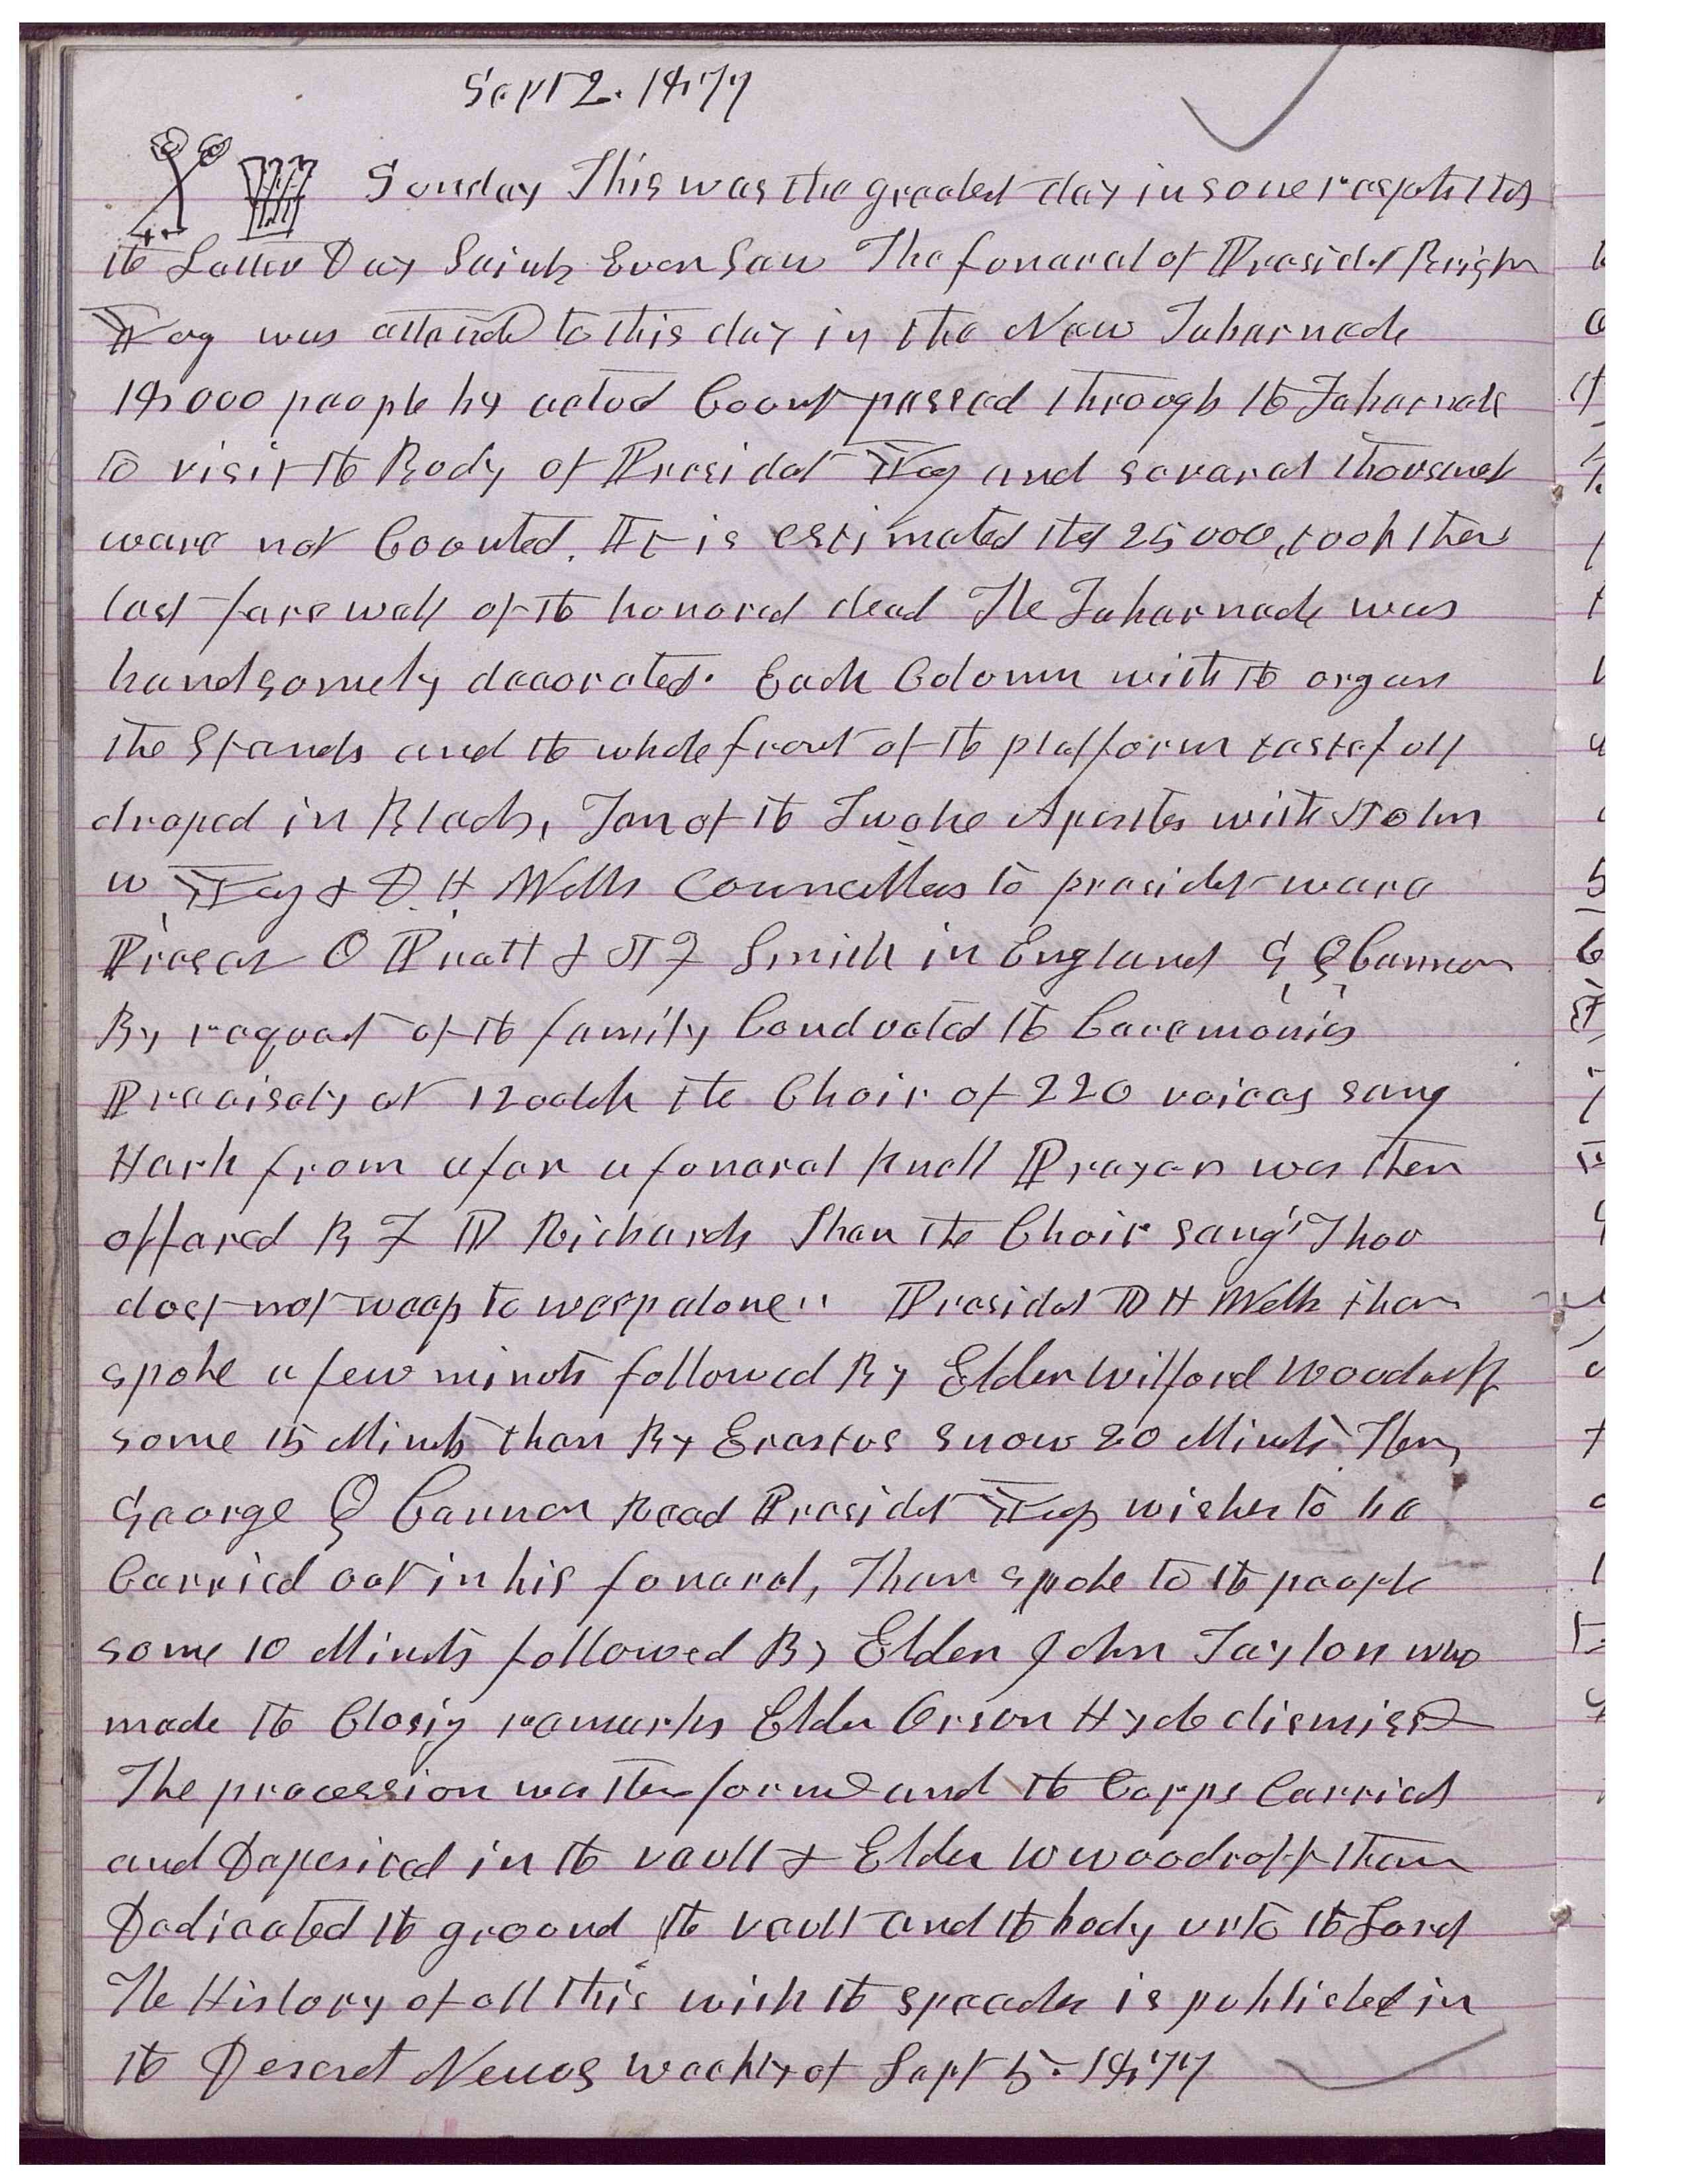 Sept 2. 1877
Sunday This was the greatest day in some respets that
the Latter Day Saints Ever Saw The funeral of Presidet Brigham
Young was attended to this day in the New Tabernacle
18,000 people by actual Count passed through the Tabernacle
to visit the Body of President Young and several thousand
were not Counted. It is estimated that 25000, took their
last fare well of the honored dead The Tabernacle was
handsomely decorated. Each Column with the organ
the Stands and the whole front of the platform tastefull
draped in Black, Ten of the Twelve Apostles with John
W Young & D. H Wells Councillors to president were
Present O Pratt & J F Smith in England G Q Cannon
By request of the family Conducted the Ceremonies
Precisely at 12 oclok the Choir of 220 voices sang
Hark from afar a funeral knell Prayer was then
offered B F D Richards Then the Choir sang "Thou
dost not weep to weep alone" President D H Wells then
spoke a few minuts followed By Elder Wilford Woodruff
some 15 Minuts then By Erastus Snow 20 Minuts. Then
George Q Cannon Read Presidet Youngs wishes to be
Carried out in his funeral, Then spoke to the people
some 10 Minuts followed By Elder John Taylor who
made the Closing remarks Elder Orson Hyde dismissed
The procession was then formed and the Corpps Carried
and Deposited in the vault & Elder W Woodruff then
Dedicated the ground the vault and the body unto the Lord
The History of all this with the speeches is published in
the Deseret News weekly of Sept 5. 1877